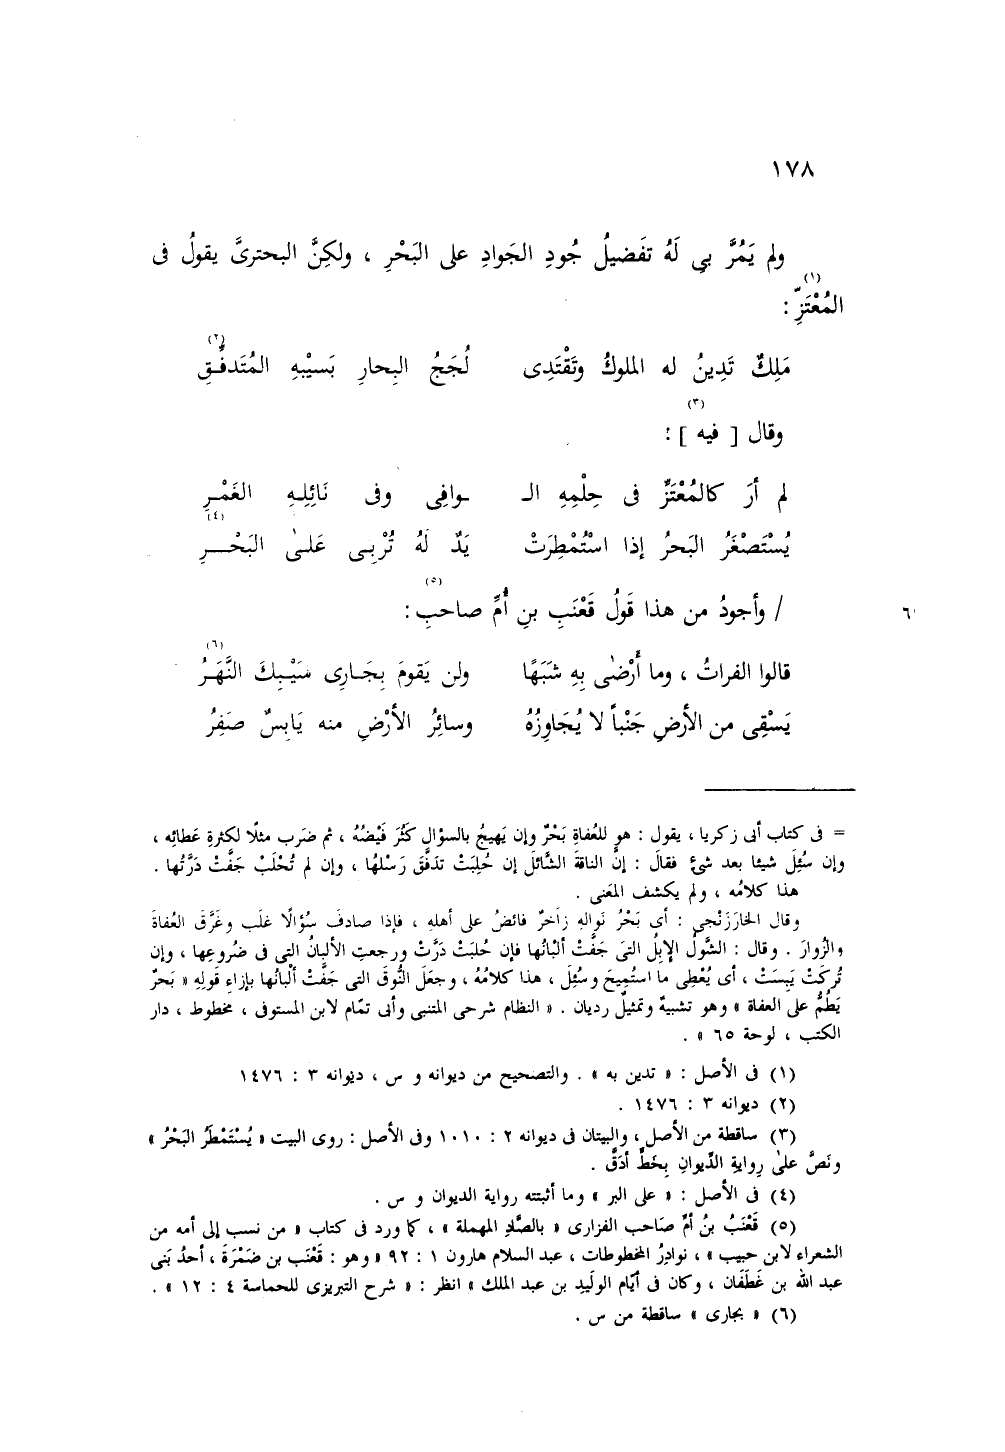 ١٧٨
ولم يَمُرَّ بِي لَهُ تفَضيلُ جُودِ الجَوادِ على البَحْرِ ، ولكِنَّ البحتريَّ يقولُ فى
المُعْتَزِّ (١) :
مَلِكٌ تَدِينُ له الملوكُ وتَقْتَدِى لُجَجُ البِحارِ بَسيْبِهِ المُتَدفِّقِ (٢)
وقال [ فيه (٣) ] :
لم أرَ كالمُعْتَزِّ فى حِلْمِهِ الـ ـوافِى وفى نَائِلِهِ الغَمْرِ
يُسْتَصْغَرُ البَحرُ إذا اسْتُمْطِرَتْ يَدٌ لَهُ تُرْبِى عَلىٰ البَحْرِ (٤)
/ وأجودُ من هذا قَولُ قَعْنَبِ بنِ أُمِّ صاحبِ (٥) : ٦
قالوا الفراتُ ، وما أَرْضىٰ بِهِ شَبَهًا ولن يَقومَ بِجَارِى سَيْبِكَ النَّهَرُ (٦)
يَسْقِى من الأرضِ جَنْباً لا يُجَاوِزُهُ وسائِرُ الأرْضِ منه يَابِسٌ صَفِرُ
= فى كتاب أبى زكريا ، يقول : هو للعُفاةِ بَحْرٌ وإن يَهيجُ بالسؤالِ كَثُرَ فَيْضُهُ ، ثم ضَرب مثلًا لكثرةِ عَطائِه ،
وإن سُئِلَ شيئا بعد شئٍ فقال : إنَّ الناقةَ الشَّائلَ إن حُلِبَتْ تدَفَّقَ رَسْلهُا ، وإن لم تُحْلَبْ جَفَّتْ دَرَّتُها .
هذا كلامُه ، ولم يكشف المَعَنى .
وقال الخارَزْنْجي : أى بَحْرُ نَوالِهِ زاَخرٌ فائضُ على أهلهِ ، فإذا صادفَ سُؤالًا غلَب وغَرَّقَ العُفاةَ
والزُّوارَ . وقال : الشَّولُ الإبِلُ التىَ جَفَّتْ ألبْانُها فإن حُلبَتْ دَرَّتْ ورجعتِ الألبانُ التى فى ضُروعِها ، وإن
تُركَتْ يَبِسَتْ ، أى يُعْطِى ما استُمِيحَ وسُئِلَ ، هذا كلامُهُ ، وجعَلَ النُّوقَ التى جَفَّتْ ألْبانُها بإزاءِ قَولِهِ « بَحرٌ
يَطُمُّ على العفاة » وهو تشبيهٌ وتمثيلٌ رديان . « النظام شرحى المتنبى وأبى تمّام لابن المستوفى ، مخطوط ، دار
الكتب ، لوحة ٦٥ » .
(١) فى الأصل : « تدين به » . والتصحيح من ديوانه و س ، ديوانه ٣ : ١٤٧٦
(٢) ديوانه ٣ : ١٤٧٦ .
(٣) ساقطة من الأصل ، والبيتان فى ديوانه ٢ : ١٠١٠ وفى الأصل : روى البيت « يُسْتَمْطَرُ البَحْرُ »
ونَصَّ علىٰ رِوايةِ الدِّيوانِ بِخَطٍّ أدَقَّ .
(٤) فى الأصل : « على البر » وما أثبتته رواية الديوان و س .
(٥) قَعْنَبُ بنُ أمِّ صَاحب الفزارى « بالصَّادِ المهملة » ، كما ورد فى كتاب « من نسب إلى أمه من
الشعراء لابن حبيب » ، نوادِرُ المخطوطات ، عبد السلام هارون ١ : ٩٢ « وهو : قَعْنَب بن ضَمْرَةَ ، أحدُ بَنى
عبد الله بن غَطَفَان ، وكان فى أيّام الولَيدِ بن عبد الملك » انظر : « شرح التبريزى للحماسة ٤ : ١٢ » .
(٦) « بجارى » ساقطة من س .